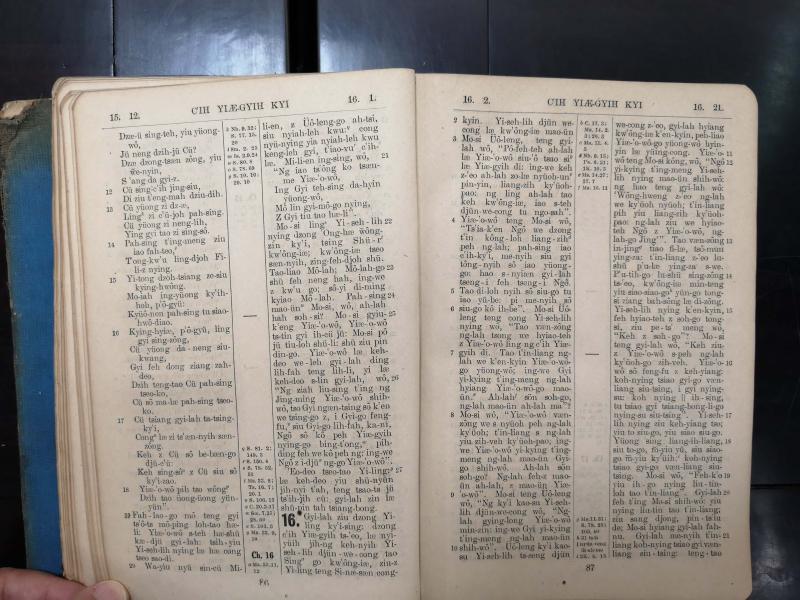 15. 12.
C'IH YIÆ-GYIH KYI
16. 1.
Dzæ-ü sing-teh, yiu yüong-
wô,
Jü neng dzih-jü Cü?
Dzæ dzong-tsæn zông, yiu
we-nyin,
S 'ang da gyi-z.
12 Cü sing-c'ih jing-siu,
Di ziu t'eng-mah dziu-dih.
13 Cü yüong z dz-æ,
Ling z c'ü-joh pah-sing.
Cü yüong zi neng-lih,
Ying gyi tao zi sing-sô.
14 Pah-sing t'ing-meng ziu
iao fah-teo,
T'ong-kw'u ling-djoh Fi-
li-z nying.
15 Yi-tong dzoh-tsiang ze-siu
kying-hwông.
Mo-iah ing-yüong ky'ih-
hoh, p'ô-gyü:
Kyüô-nen pah-sing tu siao-
hwô-diao.
16 Kying-hyiæ, p'ô-gyü, ling
gyi sing-zông,
Cü yüong da-neng siu-
kwang,
Gyi feh dong ziang zah-
deo,
Dzih teng-tao Cü pah-sing
tseo-ko,
Cü sô ma-læ pah-sing tseo-
ko.
17 Cü tsiang gyi-lah ta-tsing-
ky'i,
Cong læ zi ts'æn-nyih sæn-
zông.
Keh z Cü sô be-bæn-go
djü-c'ü:
Keh sing-sô z Cü siu sô
ky'i-zao.
18 Yiæ-'o-wô pih tao wông
Dzih tao üong-üong yün-
yün".
19 Fah-lao-go mô teng gyi
ts'ô-ts mô-ping loh-tao hæ-
li: Yiæ-'o-wô s-teh hæ-shü
kæ-djü gyi-lah: tsih-yin
Yi-seh-lih nying læ hæ cong
tseo sao-di.
20 Wa-yiu nyü sin-cü Mi-
li-en, z Üô-leng-go ah-tsi,
siu nyiah-leh kwu: cong
nyü-nying yia nyiah-leh kwu
keng-leh gyi, t'iao-vu c'ih-
læ. Mi-li-en ing-sing, wô, 21
"Ng iao ts'ông ko tsæn-
me Yiæ-'o-wô,
Ing Gyi teh-sing da-hyin
yüong-wô,
Mô lin gyi-mô-go nying,
Z Gyi tiu tao hæ-li".
Mo-si ling Yi-seh-lih 22
nying dzong Ong-hæ wông-
zin ky'i, tsing Shü-r
kw'ông-iæ; kw'ông-iæ tseo
sæn-nyih, zing-feh-djoh shü.
Tao-liao Mô-lah; Mô-lah-go 23
shü feh neng hah, ing-we
z kw'u go; sô-yi di-ming
kyiao Mô-lah. Pah-sing 24
mao-ün Mo-si, wô, ah-lah
hah soh-si? Mo-si gyiu- 25
k'eng Yiæ-'o-wô, Yiæ-'o-wô
ts-tin gyi ih-cü jü: Mo-si pô
jü tiu-loh shü-li: shü ziu pin
din-go. Yiæ-'o-wô læ keh-
deo we-leh gyi-lah ding
lih-fah teng lih-li, yi læ
keh-deo s-lin gyi-lah, wô, 26
"Ng ziah liu-sing t'ing ng
Jing-ming Yiæ-'o-wô shih-
wô, tao Gyi ngæn-tsing sô k'en
we tsing-go z, i Gyi feng-
fu, siu Gyi lih-fah, ka-ni,
Ngô sô kô peh Yiæ-gyih
nying-go bing-t'ong, ih-
ding feh we kô peh ng; ing-we
Ngô z i-djü ng-go Yiæ-'o-wô".
Eo-deo tseo-tao Yi-ling 27
læ keh-deo yiu shü-nyün
jih-nyi t'ah, teng tsao-ts jü
ts'ih-jih cü: gyi-lah zin læ
shü-pin tah tsiang-bong.
16. Gyi-lah ziu dzong Yi-
ling ky'i-sing: dzong
c'ih Yiæ-gyih ts-'eo, læ nyi-
yüih jih-ng keh-nyih Yi-
seh-lih djün-we-cong tao
Sing go kw'ông-iæ, ziu-z
Yi-ling teng Si-næ-sæn cong-
86
Ch. 16
16. 2.
C'IH YIÆ-GYIH KYI
16. 21.
2 kyin. Yi-seh-lih djün we-
cong læ kw'ông-iæ mao-ün
3 Mo-si Üô-leng, teng gyi-
lah wô, "Fô-feh-teh ah-lah
læ Yiæ-'o-wô siu-'ô tsao si
læ Yiæ-gyih di: ing-we keh
z-'eo ah-lah zo-læ nyüoh-un
pin-yin, liang-zih ky'üoh-
pao; ng ling ah-lah tao
keh kw'ông-iæ, iao s-teh
djün-we-cong tu ngo-sah".
4 Yiæ-'o-wô teng Mo-si wô,
"Ts'ia-k'en Ngô we dzong
t'in kông-loh liang-zih
peh ng-lah; pah-sing iao
c'ih-ky'i, me-nyih siu gyi
tông-nyih sô iao yüong-
go: hao s-nyien gyi-lah
tseng-i feh tseng-i Ngô.
5 Tao di-loh nyih sô siu-go tu
iao yü-be: pi me-nyih sô
6 siu-go kô ih-be". Mo-si Üô-
leng teng cong Yi-seh-lih
nying wô, "Tao væn-zông
ng-lah tsong we hyiao-teh
z Yiæ-'o-wô ling ng c'ih Yiæ-
7 gyih di. Tao t'in-liang ng-
lah we k'en-kyin Yiæ-'o-wô-
go yüong-wô; ing-we Gyi
yi-kying t'ing-meng ng-lah
hyiang Yiæ-'o-wô-go mao-
ün. Ah-lah sön soh-go,
ng-lah mao-ün ah-lah ma?"
8 Mo-si wô, "Yiæ-'o-wô væn-
zông we s nyüoh peh ng-lah
ky'üoh; t'in-liang s ng-lah
yiu zih-veh ky'üoh-pao; ing-
we Yiæ-'o-wô yi-kying t'ing-
meng ng-lah mao-ün
Gyi go shih-wô. Ah-lah sön
soh-go? Ng-lah feh-z mao-
ün ah-lah, z mao-ün Yiæ-
9 'o-wô". Mo-si teng Üô-leng
wô, "Ng ky'i kao-su Yi-seh-
lih djün-we-cong wô, 'Ng-
lah gying-long Yiæ-'o-wô
min-zin: ing-we Gyi yi-kying
t'ing-meng ng-lah mao-ün
10 shih-wô'". Üô-leng ky'i kao-
su Yi-seh-lih ta-seng djün
we-cong z-'eo, gyi-lah hyiang
kw'ông-iæ k'en-kyin, peh-liao
Yiæ-'o-wô-go yüong-wô hyin-
yin læ yüing-cong. Yiæ-'o- 11
wô teng Mo-si kông, wô, "Ngô 12
yi-kying t'ing-meng Yi-seh-
lih nying mao-ün shih-wô;
ng hao teng gyi-lah wô:
'Wông-hweng z-'eo ng-lah
we ky'üoh nyüoh; t'in-liang
pih yiu liang-zih ky'üoh-
pao: ng-lah ziu we hyiao-
teh Ngô z Yiæ-'o-wô, ng-
lah-go Jing'". Tao væn-zông 13
in-jing tao fi-læ, tsô-mun
ying-za: t'in-liang z-'eo lu-
shü p'u-læ ying-za s-we.
Lu-shü sing-zông 14
ts-'eo, kw'ông-iæ min-teng
yiu siao-siao-go yün-go tong-
si ziang bah-sông læ di-zông.
Yi-seh-lih nying k'en-kyin, 15
feh hyiao-teh z soh-go tong-
si, ziu pe-ts meng wô,
"Keh z soh-go?" Mo-si
teng gyi-lah wô, "Keh ziu-
z Yiæ-'o-wô s-peh ng-lah
ky'üoh-go zih-veh. Yiæ-'o- 16
wô sô feng-fu z keh-yiang:
koh-nying tsiao gyi-go væn-
liang siu-tsing, i gyi nying-
su: koh nying ih-ing,
tu tsiao gyi tsiang-bong-li-go
nying-su siu-tsing". Yi-seh- 17
lih nying ziu keh-yiang tso;
yin to siu-go, yiu siao siu-go.
Yüong sing liang-ih-liang, 18
siu to-go, fi-yiu yü, siu siao-
go m-yiu ky'üih: koh-nying
tsiao gyi-go væn-liang siu-
tsing. Mo-si wô, "Feh-k'o 19
yiu ih-go nying liu-tih
loh tao t'in-liang". Gyi-lah 20
feh t'ing Mo-si shih-wô: yiu
nying liu-tin tao t'in-liang;
zin sang djong, pin-ts'iu
de; Mo-si hyiang gyi-lah fah-
nu. Gyi-lah me-nyih t'in- 21
liang koh-nying tsiao gyi væn-
liang siu-tsing: teng-tao
87